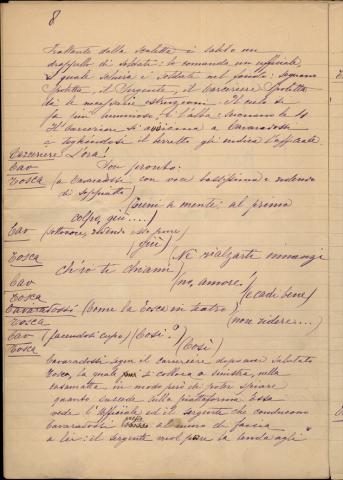 8
Frattanto dalla scaletta è salito un
drappello di soldati: lo comanda un ufficiale,
il quale schiera i soldati nel fondo: seguono
Spoletta, il Sergente, il Carceriere Spoletta
dà le necessarie istruzioni. Il cielo si
fa più luminoso; è l'alba: suonano le 4
Il Carceriere si avvicina a Cavaradossi
e togliendosi il berretto gli indica l'ufficiale
Carceriere L'ora!
Cav Son pronto.
Tosca (a Cavaradossi con voce bassissima e ridendo
di soppiatto)
(Tieni a mente: al primo
colpo, giù....)
Cav (sottovoce, ridendo esso pure)
(giù)
Tosca (Nè rialzarti innanzi
ch'io ti chiami)
Cav (no, amore!)
Tosca (e cadi bene)
Cavaradossi (Come la Tosca in teatro)
Tosca (non ridere...)
Cav (facendosi cupo) (Così?)
Tosca (Così)
Cavaradossi segue il carceriere dopo aver salutato
Tosca, la quale si colloca a sinistra, nella
casamatta in modo però di poter spiare
quanto succede sulla piattaforma. Essa
vede l'Ufficiale ed il Sergente che conducono
Cavaradossi presso al muro di faccia
a lei: il sergente vuol porre la benda agli